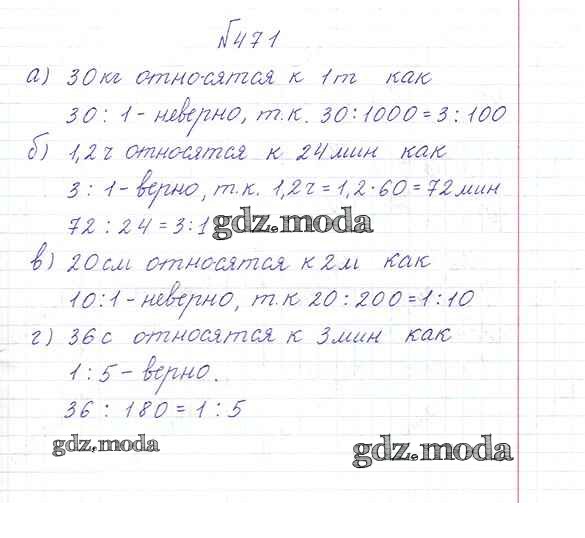 №471
а) 30 кг относятся к 1 т как
30 : 1 - неверно, т.к. 30:1000=3:100
б) 1,2 ч относятся к 24 мин как
3 : 1 - верно, т.к. 1,2 ч = 1,2·60 = 72 мин
72 : 24 = 3:1
gdz.moda
в) 20 см относятся к 2 м как
10:1 - неверно, т.к 20 : 200=1:10
г) 36 с относятся к 3 мин как
1 : 5 - верно.
36 : 180 = 1 : 5
gdz.moda
gdz.moda